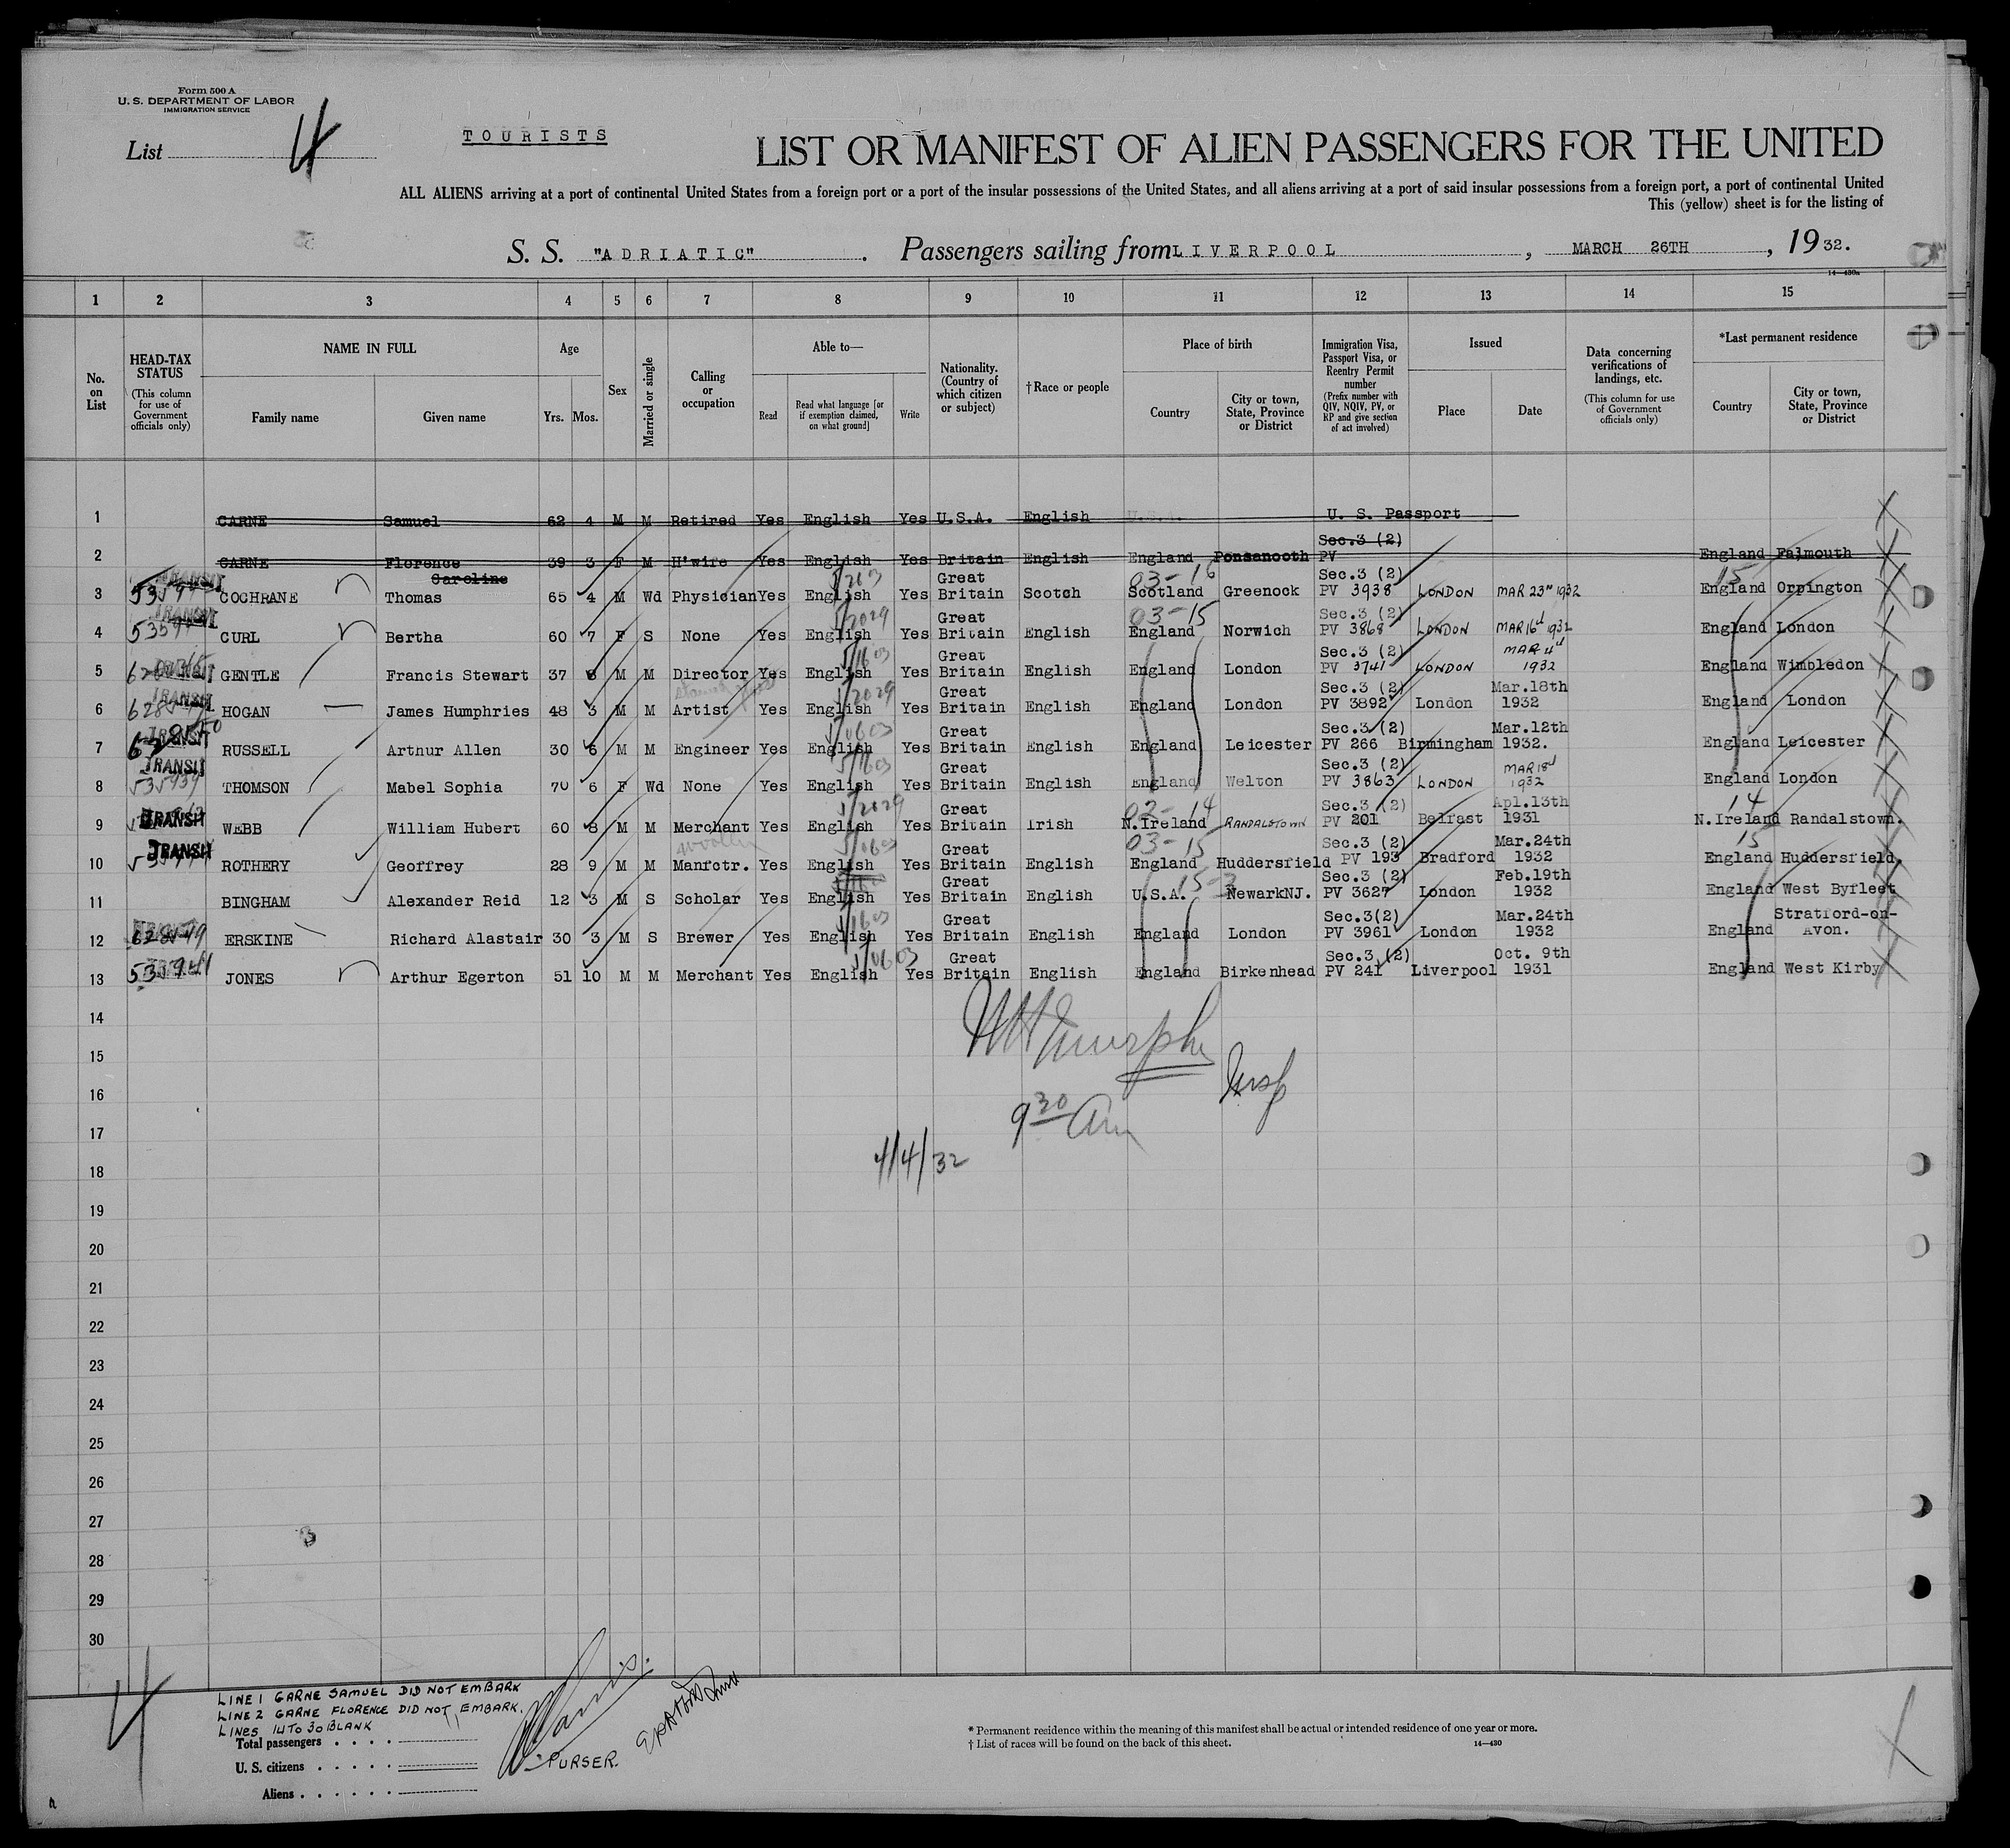 Form 500 A
U. S. DEPARTMENT OF LABOR
IMMIGRATION SERVICE
List 4
TOURISTS
LIST OR MANIFEST OF ALIEN PASSENGERS FOR THE UNITED
ALL ALIENS arriving at a port of continental United States from a foreign port or a port of the insular possessions of the United States, and all aliens arriving at a port of said insular possessions from a foreign port, a port of continental United
This (yellow) sheet is for the listing of
S. S. "ADRIATIC". Passengers sailing from LIVERPOOL, MARCH 26TH, 1932.
14—430a
1 2 3 4 5 6 7 8 9 10 11 12 13 14 15
No. on List
HEAD-TAX STATUS (This column for use of Government officials only)
NAME IN FULL
Family name Given name
Age
Yrs. Mos.
Sex
Married or single
Calling or occupation
Able to—
Read Read what language [or if exemption claimed, on what ground] Write
Nationality. (Country of which citizen or subject)
†Race or people
Place of birth
Country City or town, State, Province or District
Immigration Visa, Passport Visa, or Reentry Permit number (Prefix number with QIV, NQIV, PV, or RP and give section of act involved)
Issued
Place Date
Data concerning verifications of landings, etc. (This column for use of Government officials only)
*Last permanent residence
Country City or town, State, Province or District
1 GARNE Samuel 62 4 M M Retired Yes English Yes U.S.A. English U.S.A. U. S. Passport
2 GARNE Florence Caroline 39 3 F M H'wife Yes English Yes Britain English England Ponsanooth Sec.3 (2) PV England Falmouth
3 TRANSIT COCHRANE Thomas 65 4 M Wd Physician Yes English Yes Great Britain Scotch 03-16 Scotland Greenock Sec.3 (2) PV 3938 LONDON MAR 23rd 1932 15 England Orpington
4 TRANSIT CURL Bertha 60 7 F S None Yes English Yes Great Britain English 03-15 England Norwich Sec.3 (2) PV 3868 LONDON MAR 16th 1932 England London
5 TRANSIT GENTLE Francis Stewart 37 8 M M Director Yes English Yes Great Britain English England London Sec.3 (2) PV 3741 LONDON MAR 4th 1932 England Wimbledon
6 TRANSIT HOGAN James Humphries 48 3 M M Artist Yes English Yes Great Britain English England London Sec.3 (2) PV 3892 London Mar.18th 1932 England London
7 TRANSIT RUSSELL Arthur Allen 30 6 M M Engineer Yes English Yes Great Britain English England Leicester Sec.3 (2) PV 266 Birmingham Mar.12th 1932. England Leicester
8 TRANSIT THOMSON Mabel Sophia 70 6 F Wd None Yes English Yes Great Britain English England Welton Sec.3 (2) PV 3863 LONDON MAR 18th 1932 England London
9 TRANSIT WEBB William Hubert 60 8 M M Merchant Yes English Yes Great Britain Irish 02-14 N.Ireland RANDALSTOWN Sec.3 (2) PV 201 Belfast Apl.13th 1931 14 N.Ireland Randalstown.
10 TRANSIT ROTHERY Geoffrey 28 9 M M Woollen Manfctr. Yes English Yes Great Britain English 03-15 England Huddersfield Sec.3 (2) PV 193 Bradford Mar.24th 1932 15 England Huddersfield.
11 BINGHAM Alexander Reid 12 3 M S Scholar Yes English Yes Great Britain English U.S.A. Newark NJ. Sec.3 (2) PV 3627 London Feb.19th 1932 England West Byfleet
12 ERSKINE Richard Alastair 30 3 M S Brewer Yes English Yes Great Britain English England London Sec.3(2) PV 3961 London Mar.24th 1932 England Stratford-on-Avon.
13 535941 JONES Arthur Egerton 51 10 M M Merchant Yes English Yes Great Britain English England Birkenhead Sec.3 (2) PV 241 Liverpool Oct. 9th 1931 England West Kirby
14
15
16
17
18
19
20
21
22
23
24
25
26
27
28
29
30
Murphy
Insp
9 30 Am
4/4/32
4
LINE 1 GARNE SAMUEL DID NOT EMBARK
LINE 2 GARNE FLORENCE DID NOT EMBARK.
LINES 14 TO 30 BLANK
Total passengers
U. S. citizens
Aliens
PURSER.
* Permanent residence within the meaning of this manifest shall be actual or intended residence of one year or more.
† List of races will be found on the back of this sheet.
14—430